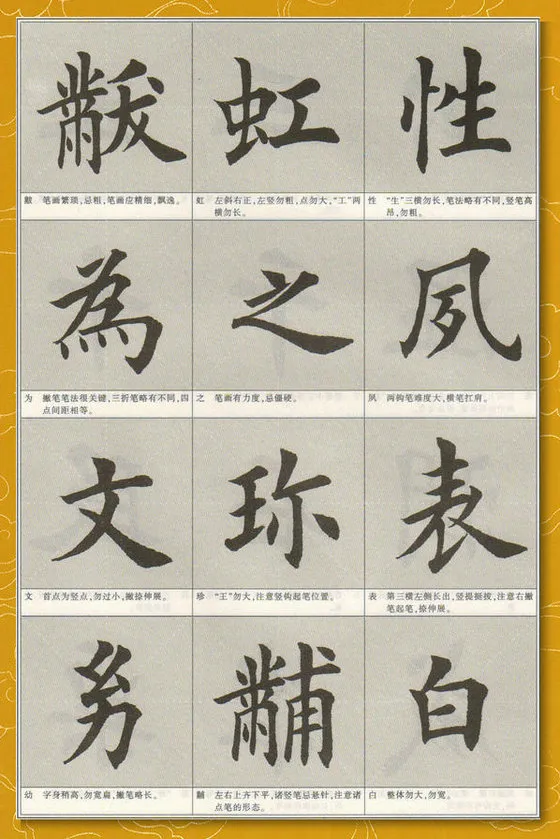 黻
黻 笔画繁琐,忌粗,笔画应精细,飘逸。
虹
虹 左斜右正,左竖勿粗,点勿大,“工”两
横勿长。
性
性 “生”三横勿长,笔法略有不同,竖笔高
昂,勿粗。
為
为 撇笔笔法很关键,三折笔略有不同,四
点间距相等。
之
之 笔画有力度,忌僵硬。
夙
夙 两钩笔难度大,横笔扛肩。
文
文 首点为竖点,勿过小,撇捺伸展。
珎
珍 “王”勿大,注意竖钩起笔位置。
表
表 第三横左侧长出,竖提挺拔,注意右撇
笔起笔,捺伸展。
幼
幼 字身稍高,勿宽扁,撇笔略长。
黼
黼 左右上齐下平,诸竖笔忌悬针,注意诸
点笔的形态。
白
白 整体勿大,勿宽。